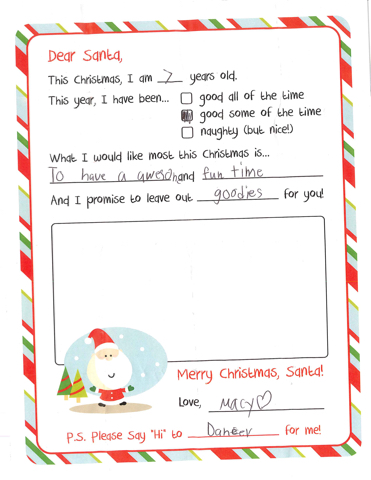 Dear Santa,
This Christmas, I am 7 years old.
This year, I have been... good all of the time
good some of the time
naughty (but nice!)
What I would like most this Christmas is...
To have a and fun time
And I promise to leave out goodies for you!
Merry Christmas, Santa!
Love, Macy
P.S. Please Say "Hi" to Dancer for me!